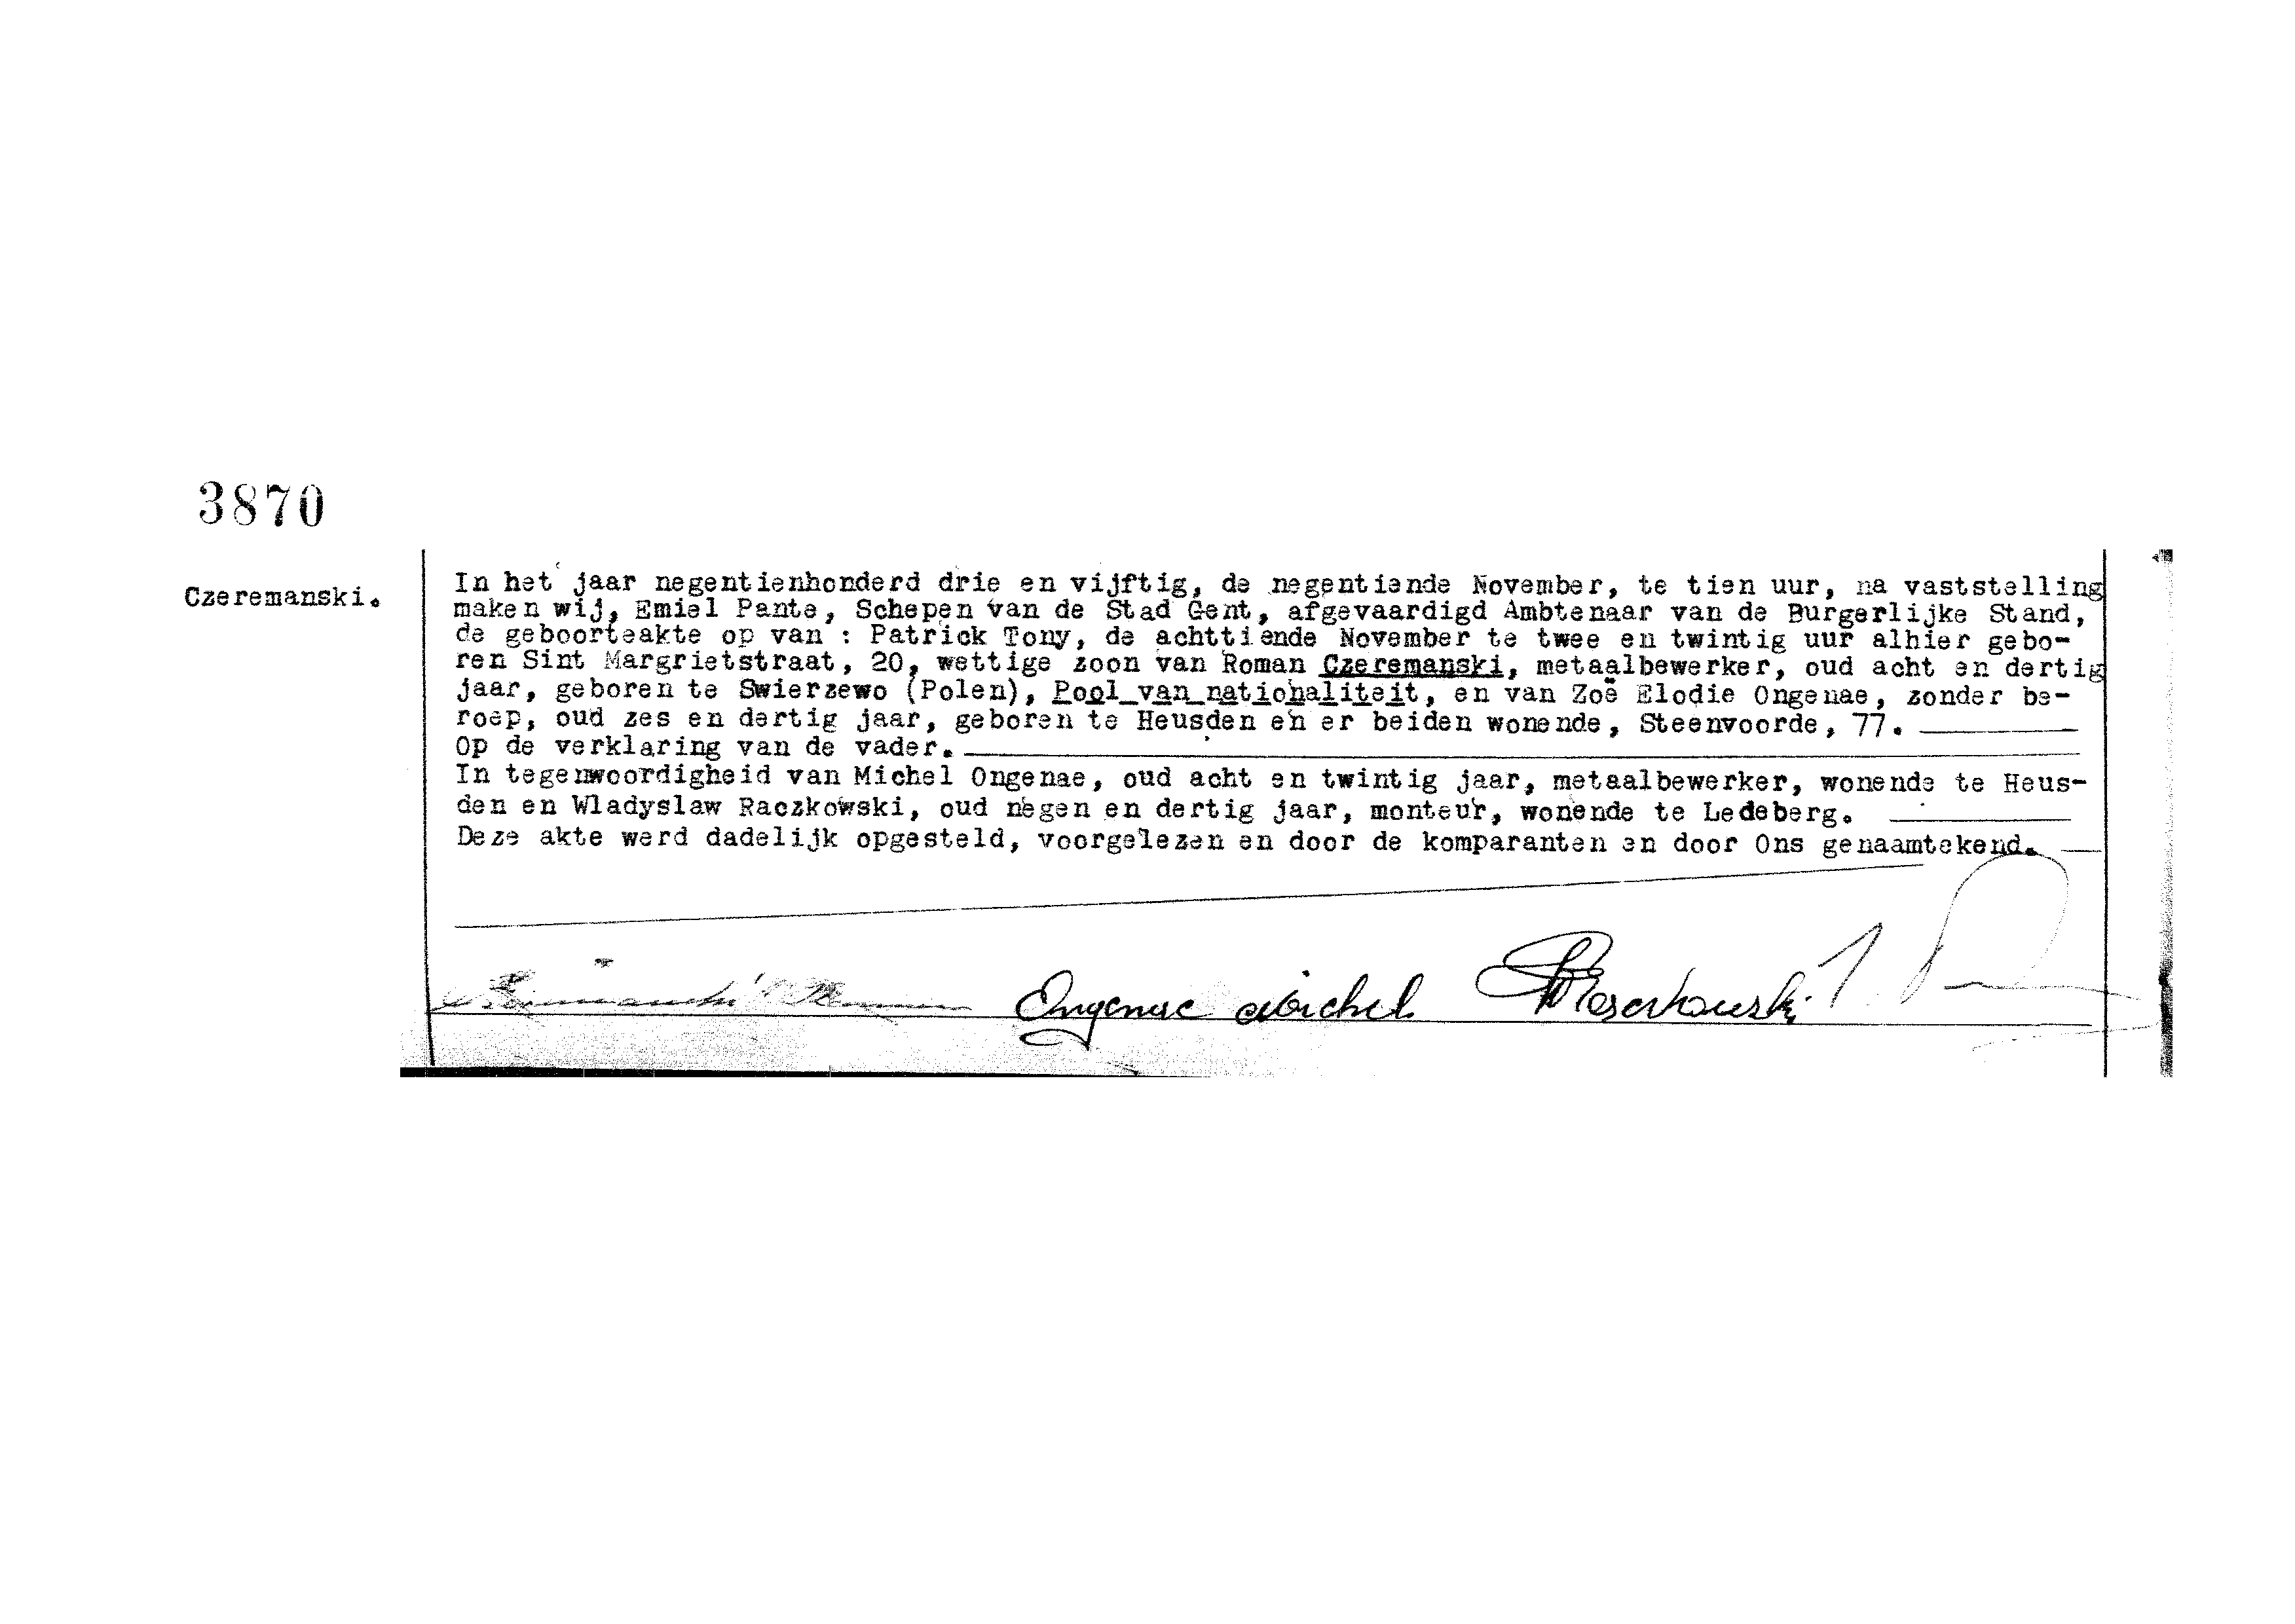 3870
Czeremanski.
In het jaar negentienhonderd drie en vijftig, de negentiende November, te tien uur, na vaststelling
maken wij, Emiel Pante, Schepen van de Stad Gent, afgevaardigd Ambtenaar van de Burgerlijke Stand,
de geboorteakte op van : Patrick Tony, de achttiende November te twee en twintig uur alhier gebo-
ren Sint Margrietstraat, 20, wettige zoon van Roman Czeremanski, metaalbewerker, oud acht en dertig
jaar, geboren te Swierzewo (Polen), Pool van nationaliteit, en van Zoë Elodie Ongenae, zonder be-
roep, oud zes en dertig jaar, geboren te Heusden en er beiden wonende, Steenvoorde, 77.
Op de verklaring van de vader.
In tegenwoordigheid van Michel Ongenae, oud acht en twintig jaar, metaalbewerker, wonende te Heus-
den en Wladyslaw Raczkowski, oud negen en dertig jaar, monteur, wonende te Ledeberg.
Deze akte werd dadelijk opgesteld, voorgelezen en door de komparanten en door Ons genaamtekend.
Ongenae Michel